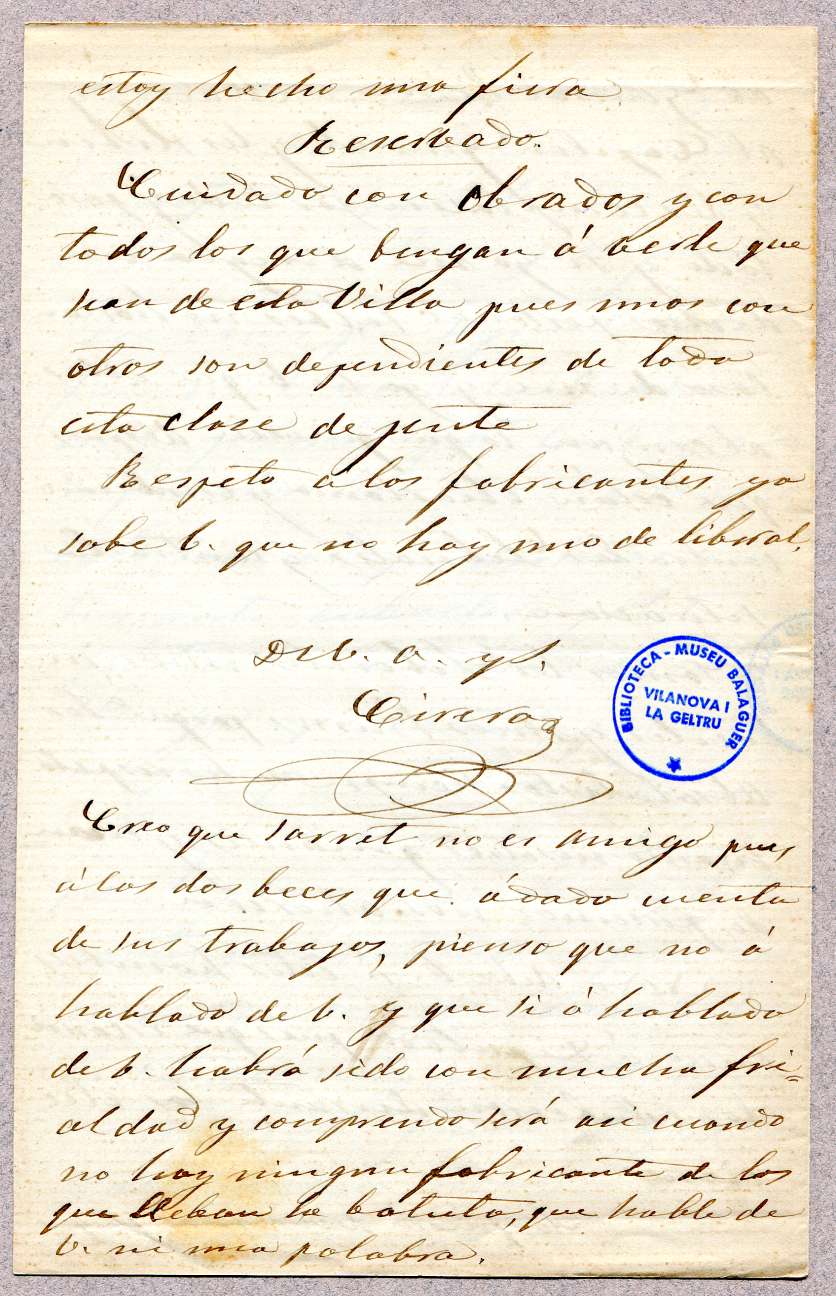 estoy hecho una fiera
Reserbado.
Cuidado con Obrados y con
todos los que bengan á berle que
sean de esta Villa pues unos con
otros son dependientes de toda
esta clase de jente
Respeto a los fabricantes ya
sabe b. que no hay uno de liberal.
De b. a. y S.
Cirera
BIBLIOTECA - MUSEU BALAGUER
VILANOVA I
LA GELTRU
Creo que Sarret no es amigo pues
á las dos beces que á dado cuenta
de sus trabajos, pienso que no á
hablado de b. y que si á hablado
de b. habrá sido con mucha fri=
aldad y comprendo será asi cuando
no hay ningun fabricante de los
que lleban la batuta, que hable de
b. ni una palabra.